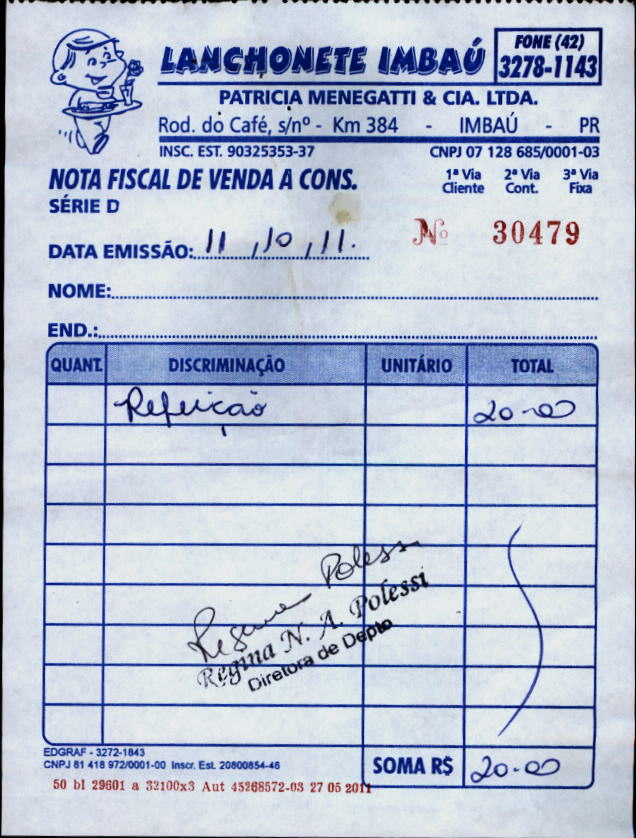 LANCHONETE IMBAÚ
FONE (42)
3278-1143
PATRICIA MENEGATTI & CIA. LTDA.
Rod. do Café, s/nº - Km 384 - IMBAÚ - PR
INSC. EST. 90325353-37 CNPJ 07 128 685/0001-03
NOTA FISCAL DE VENDA A CONS.
SÉRIE D
1ª Via 2ª Via 3ª Via
Cliente Cont. Fixa
Nº 30479
DATA EMISSÃO: 11, 10, 11.
NOME:
END.:
QUANT. DISCRIMINAÇÃO UNITÁRIO TOTAL
Refeição 20-00
Regina Polessi
Regina N. A. Polessi
Diretora de Depto
EDGRAF - 3272-1843
CNPJ 81 418 972/0001-00 Inscr. Est. 20800854-46
SOMA R$ 20-00
50 bl 29601 a 32100x3 Aut 45268572-03 27 05 2011